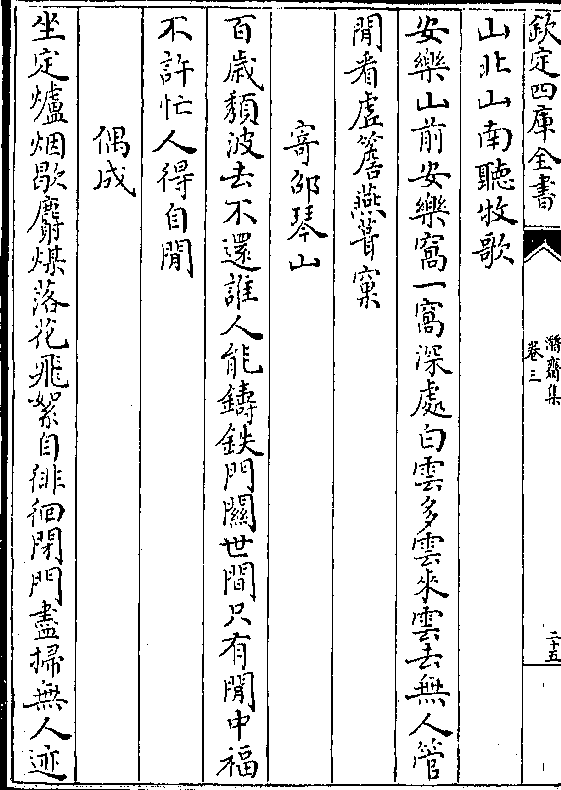 欽定四庫全書
潛齋集
卷三
二十五
山北山南聽牧歌
安樂山前安樂窩一窩深處白雲多雲來雲去無人管
閒看虛簷燕葺窠
寄邵琴山
百歲頽波去不還誰人能鑄鉄門關世間只有閒中福
不許忙人得自閒
偶成
坐定爐烟歇麝煤落花飛絮自徘徊閉門盡掃無人迹